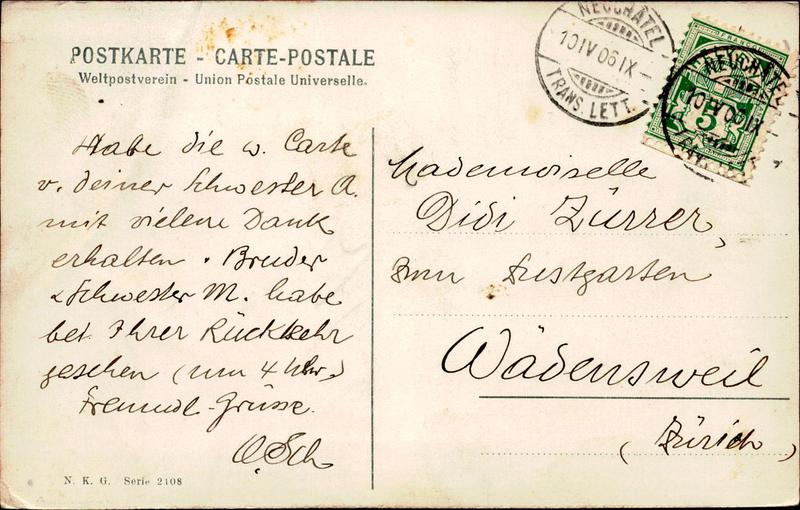 POSTKARTE - CARTE-POSTALE
Weltpostverein - Union Postale Universelle.
NEUCHÂTEL
10 IV 06 IX
TRANS. LETT.
FRANCO
5
NEUCHÂTEL
10 IV 06 IX
Habe die w. Carte
v. deiner Schwester A.
mit vielene Dank
erhalten. Bruder
& Schwester M. habe
bei Ihrer Rückkehr
gesehen (um 4 Uhr)
Freundl. Grüsse.
O. Sch
Mademoiselle
Didi Zürrer,
Zum Lustgarten
Wädensweil
(Zürich)
N. K. G. Serie 2108